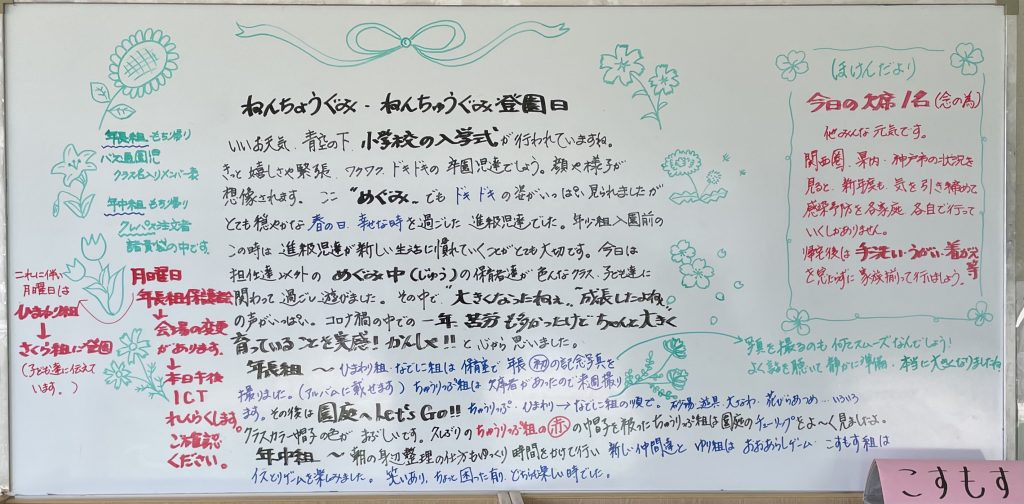 ねんちょうぐみ・ねんちゅうぐみ登園日
いいお天気、青空の下、小学校の入学式が行われていますね。
きっと嬉しさや緊張、ワクワク、ドキドキの卒園児達でしょう。顔や様子が
想像されます。ここ"めぐみ"でもドキドキの姿がいっぱい見られましたが
とても穏やかな春の日、幸せな時を過ごした進級児達でした。年少組入園前の
この時は進級児達が新しい生活に慣れていくのがとても大切です。今日は
担任達以外のめぐみ中(じゅう)の保育者達が色んなクラス、子ども達に
関わって過ごし、遊びました。その中で、"大きくなったねぇ" "成長したよね"
の声がいっぱい。コロナ禍の中での一年、苦労も多かったけどちゃんと大きく
育っていることを実感！かんしゃ!!と心から思いました。
年長組～ひまわり組・なでしこ組は保育室で年長(初)の記念写真を
撮りました。(アルバムに載せます)ちゅうりっぷ組は欠席者があったので来園撮り
ます。その後は園庭へLet's Go!! ちゅうりっぷ・ひまわり→なでしこ組の順で。砂場、遊具、大なわ、花びらあつめ…いろいろ
クラスカラー帽子の色がまぶしいです。久しぶりのちゅうりっぷ組の赤の帽子を被ったちゅうりっぷ組は園庭のチューリップをよ～く見ましたよ。
年中組～朝の身辺整理の仕方もゆっくり時間をかけて行い新しい仲間達とゆり組はおおあらしゲーム、こすもす組は
イスとりゲームを楽しみました。笑いあり、ちょっと困った有り、どちらも楽しい時でした。
写真を撮るのも何てスムーズなんでしょう！
よく話を聴いて静かに準備、本当に大きくなりましたね
年長組もち帰り
バス通園児
クラス名入りメンバー表
年中組もち帰り
クレパス注文者
諸費袋の中です。
月曜日
年長組保護者会
↓
会場の変更
があります。
↓
本日午後
ICT
れんらくします。
ご確認
ください。
これに伴い
月曜日は
ひまわり組
↓
さくら組に登園
(子ども達に伝えて
います。)
ほけんだより
今日の欠席1名(念の為)
他みんな元気です。
関西圏、県内・神戸市の状況を
見ると、新年度も、気を引き締めて
感染予防を各家庭、各自で行って
いくしかありません。
帰宅後は手洗い・うがい・着がえ等
を忘れずに家族揃って行いましょう。
こすもす